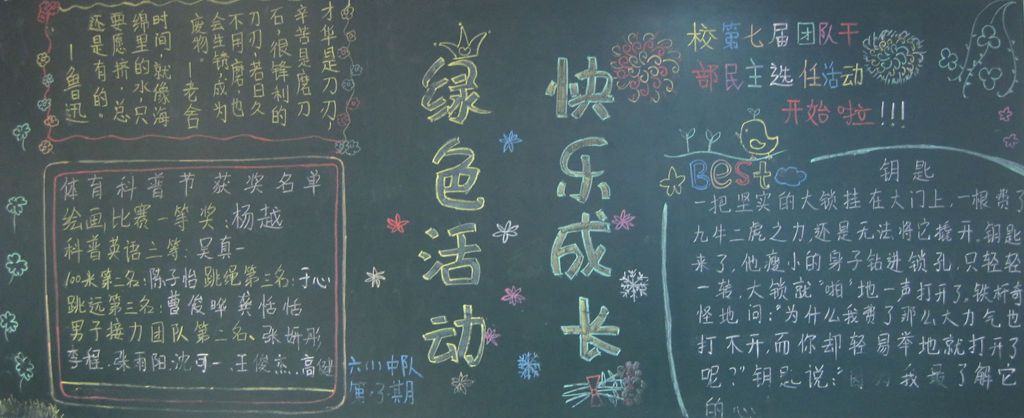 才华是刀刃,
辛苦是磨刀
石,很锋利的
刀刃,若日久
不用磨,也
会生锈,成为
废物。—老舍
时间就像海
绵里的水,只
要愿挤,总
还是有的。
—鲁迅
体育科普节获奖名单
绘画比赛一等奖:杨越
科普英语二等:吴真一
100米第二名:陈子怡 跳绳第三名:于心
跳远第三名:曹俊晔 龚恬恬
男子接力团队第二名、张妍彤
李程.张雨阳.沈可一.王俊杰.高健
绿色活动
快乐成长
六(1)中队
第子期
校第七届团队干
部民主选任活动
开始啦!!!
Best
钥匙
一把坚实的大锁挂在大门上,一根费了
九牛二虎之力,还是无法将它撬开.钥匙
来了,他瘦小的身子钻进锁孔,只轻轻
一转,大锁就“啪”地一声打开了.铁杆奇
怪地问:“为什么我费了那么大力气也
打不开,而你却轻易举地就打开了
呢?”钥匙说:“因为我最了解它
的心.”